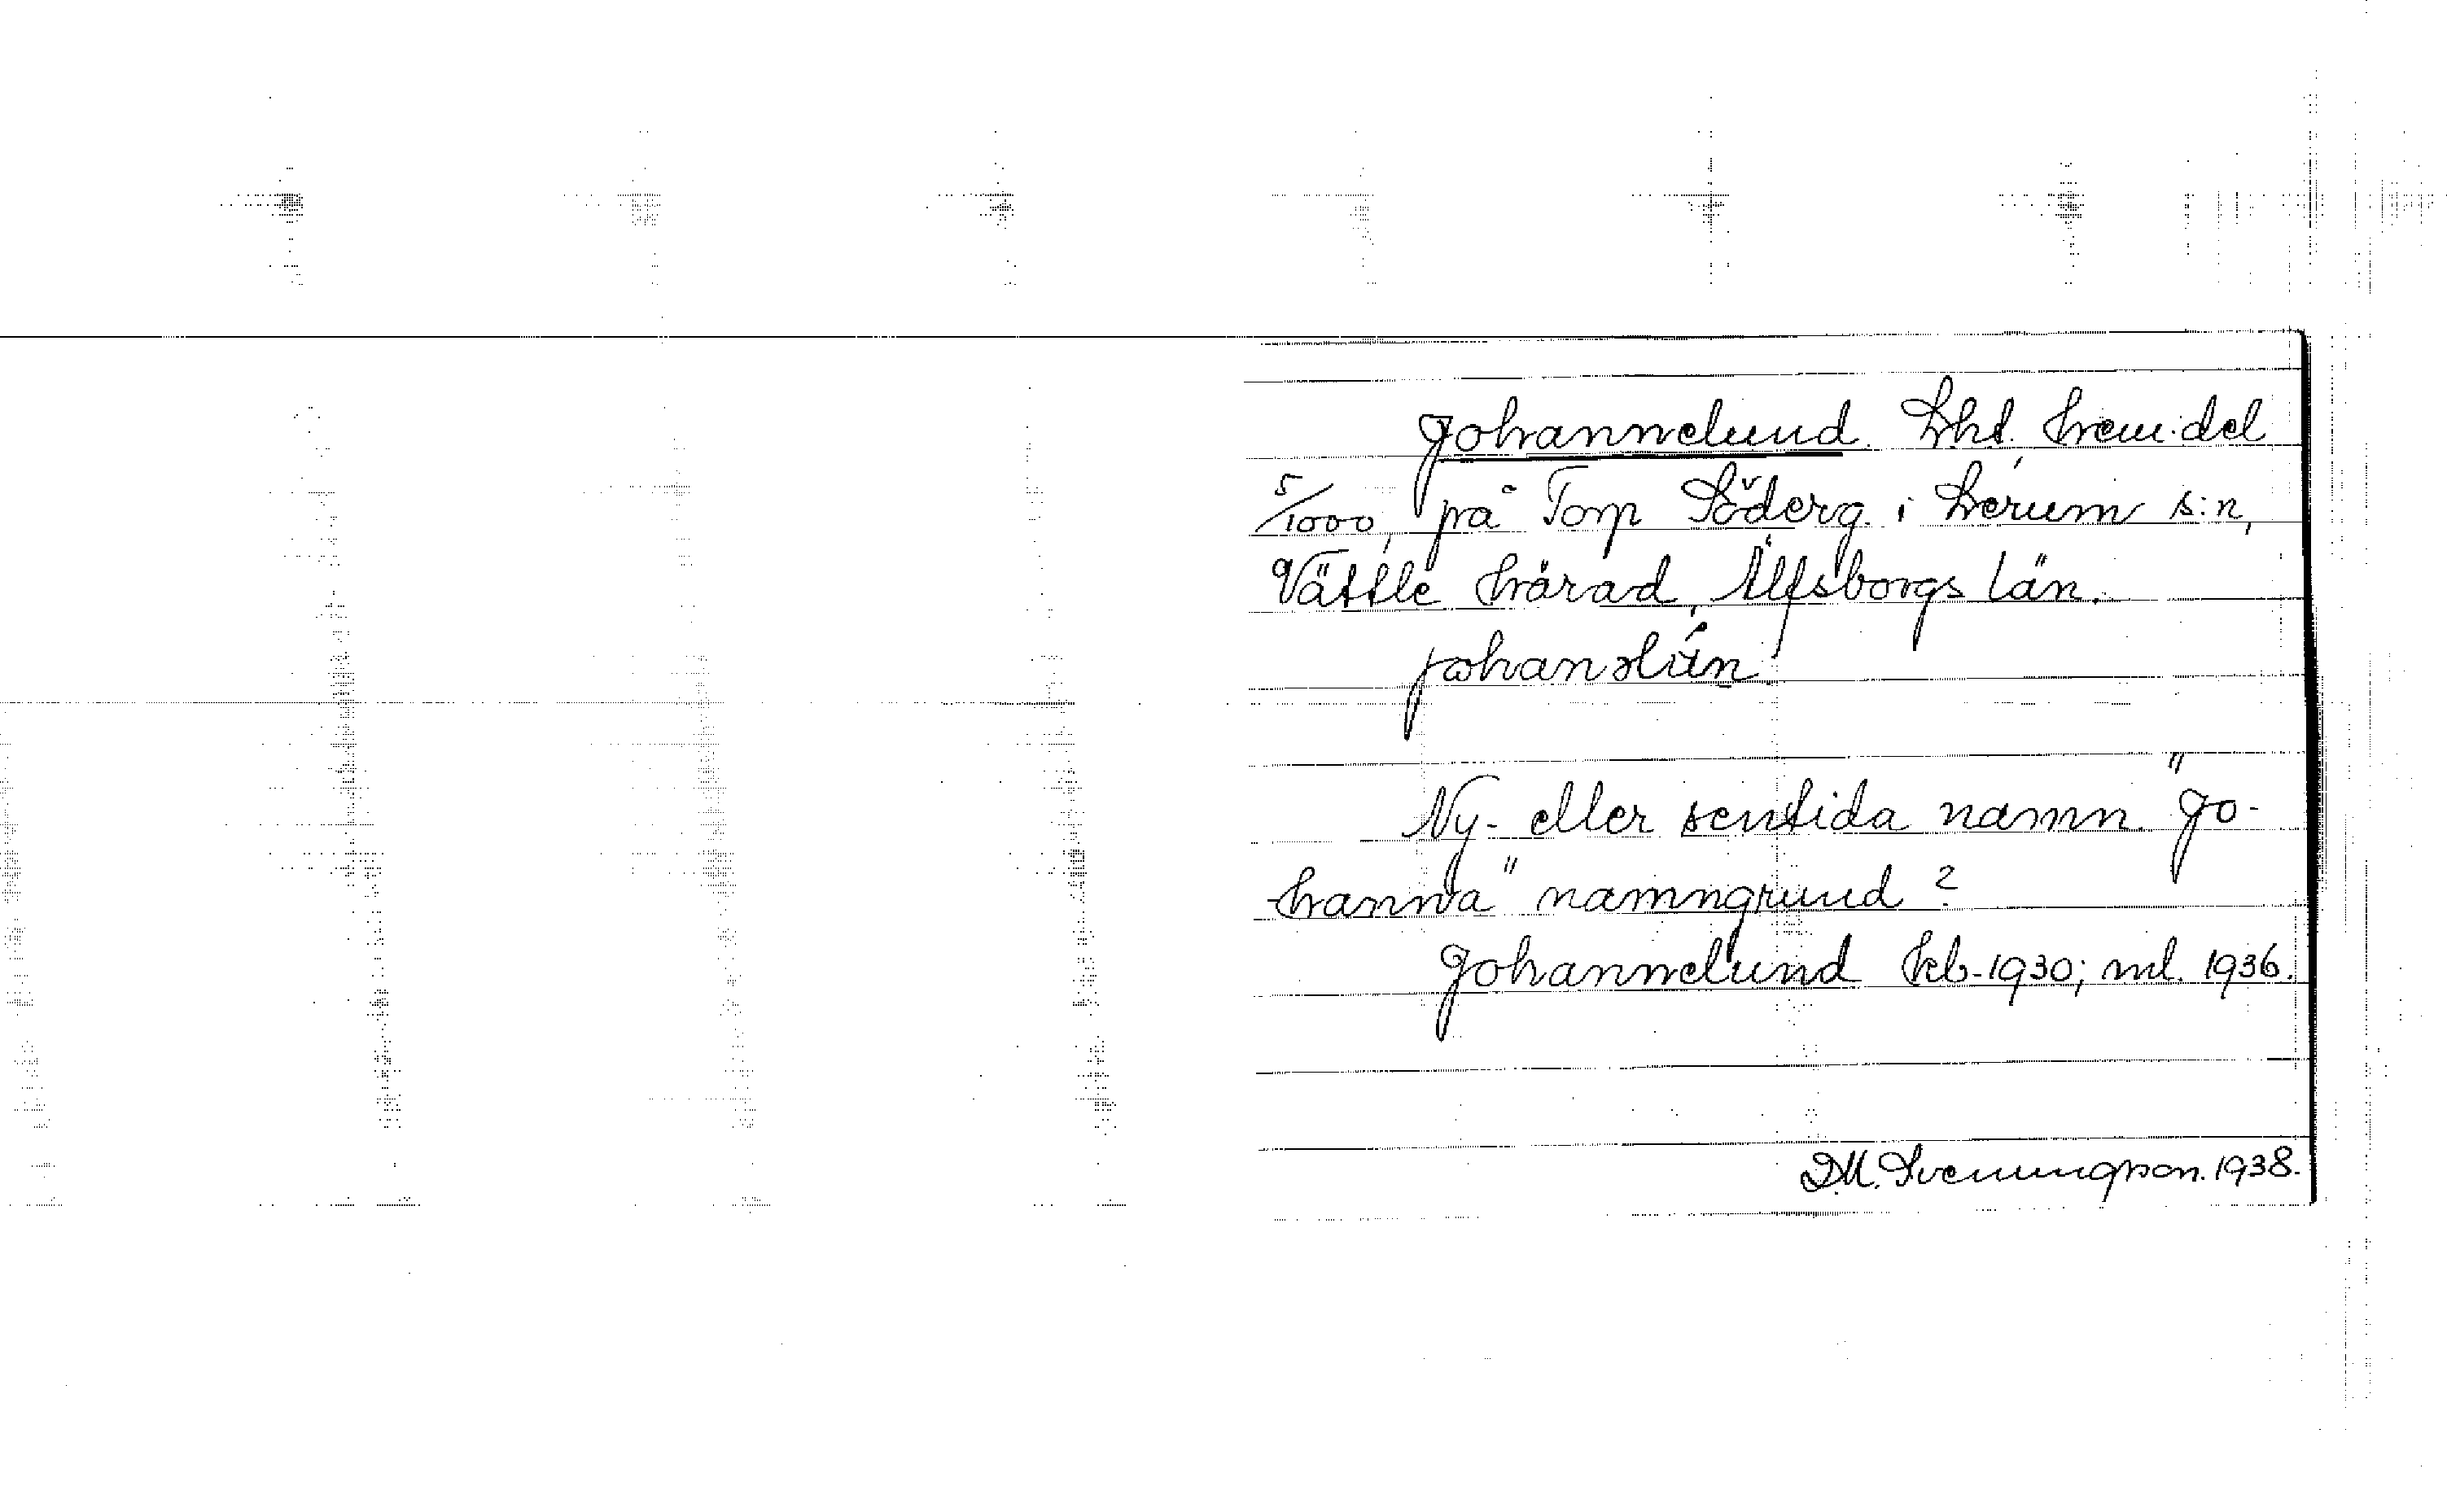 Johannelund. Lht. hem.del
5/1000, på Torp Söderg. i Lerum s:n,
Vättle härad, Älfsborgs län.
Ny- eller sentida namn. "Jo-
hanna" namngrund?
Johannelund Hcb-1930; ml. 1936.
D.M. Svenungson. 1938.